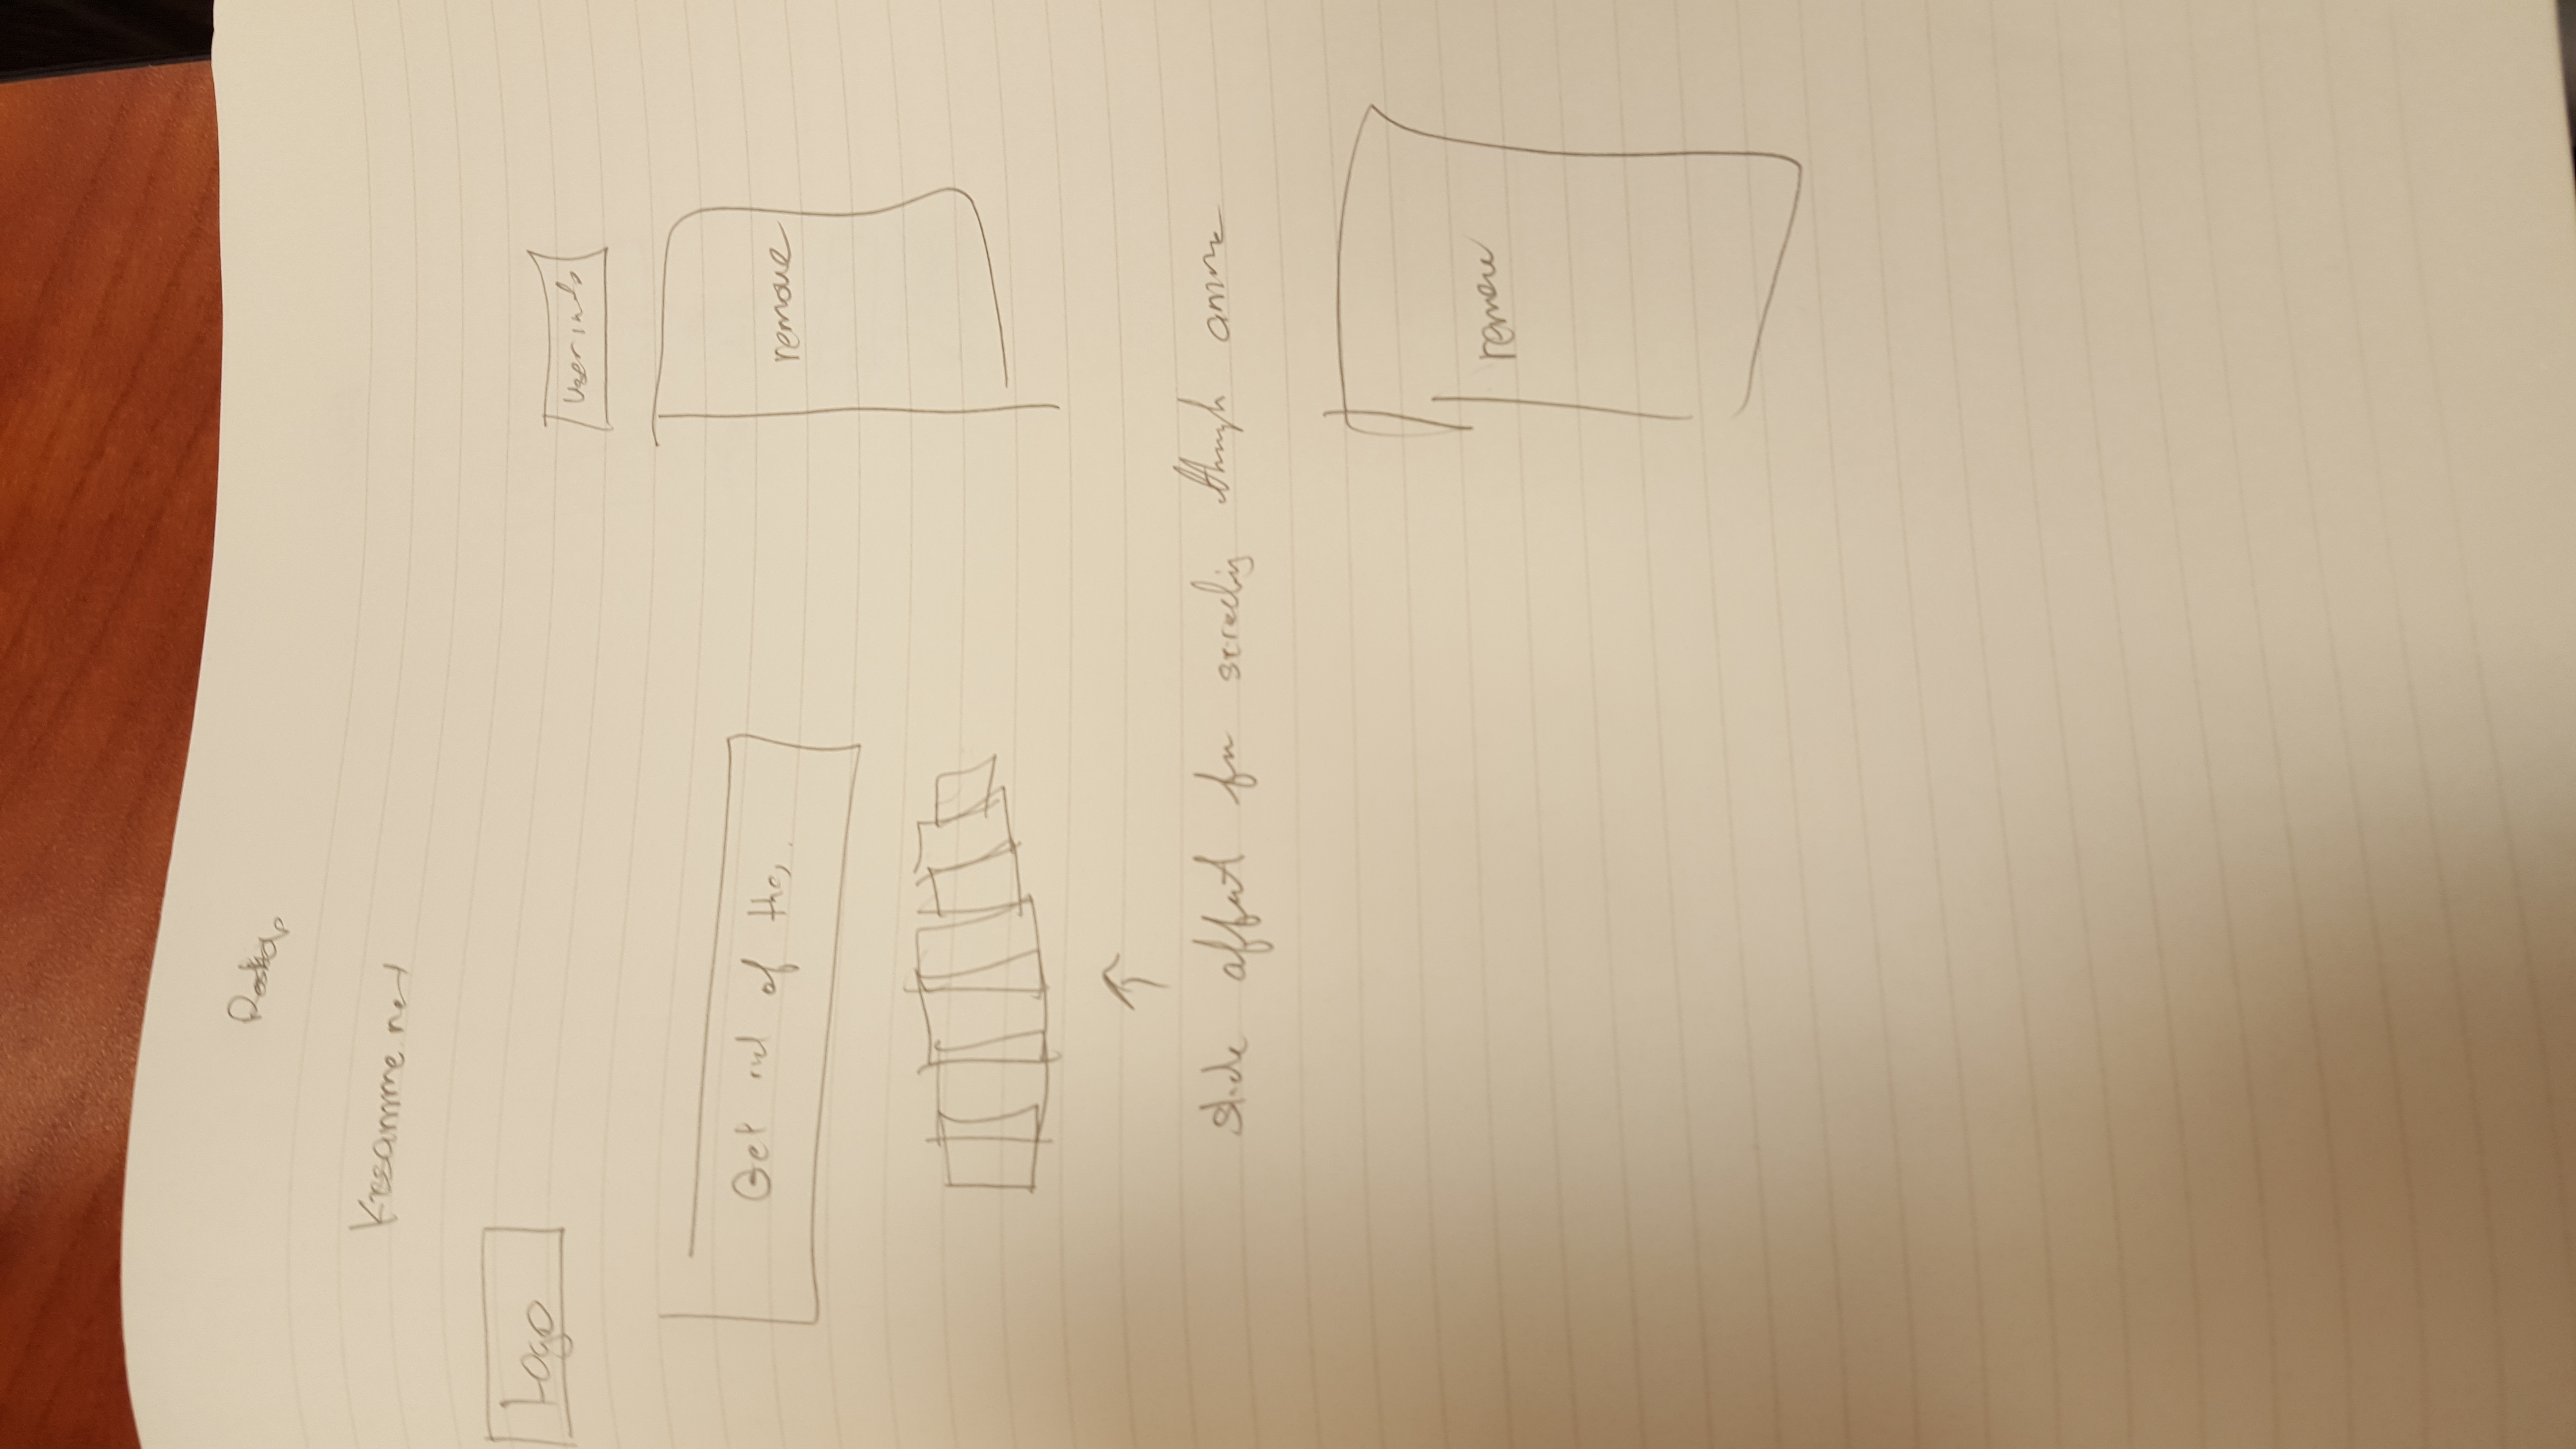 Desktop
Kissanime.net
Logo
User info
Get rid of this.
remove
slide affect for through anime
remove